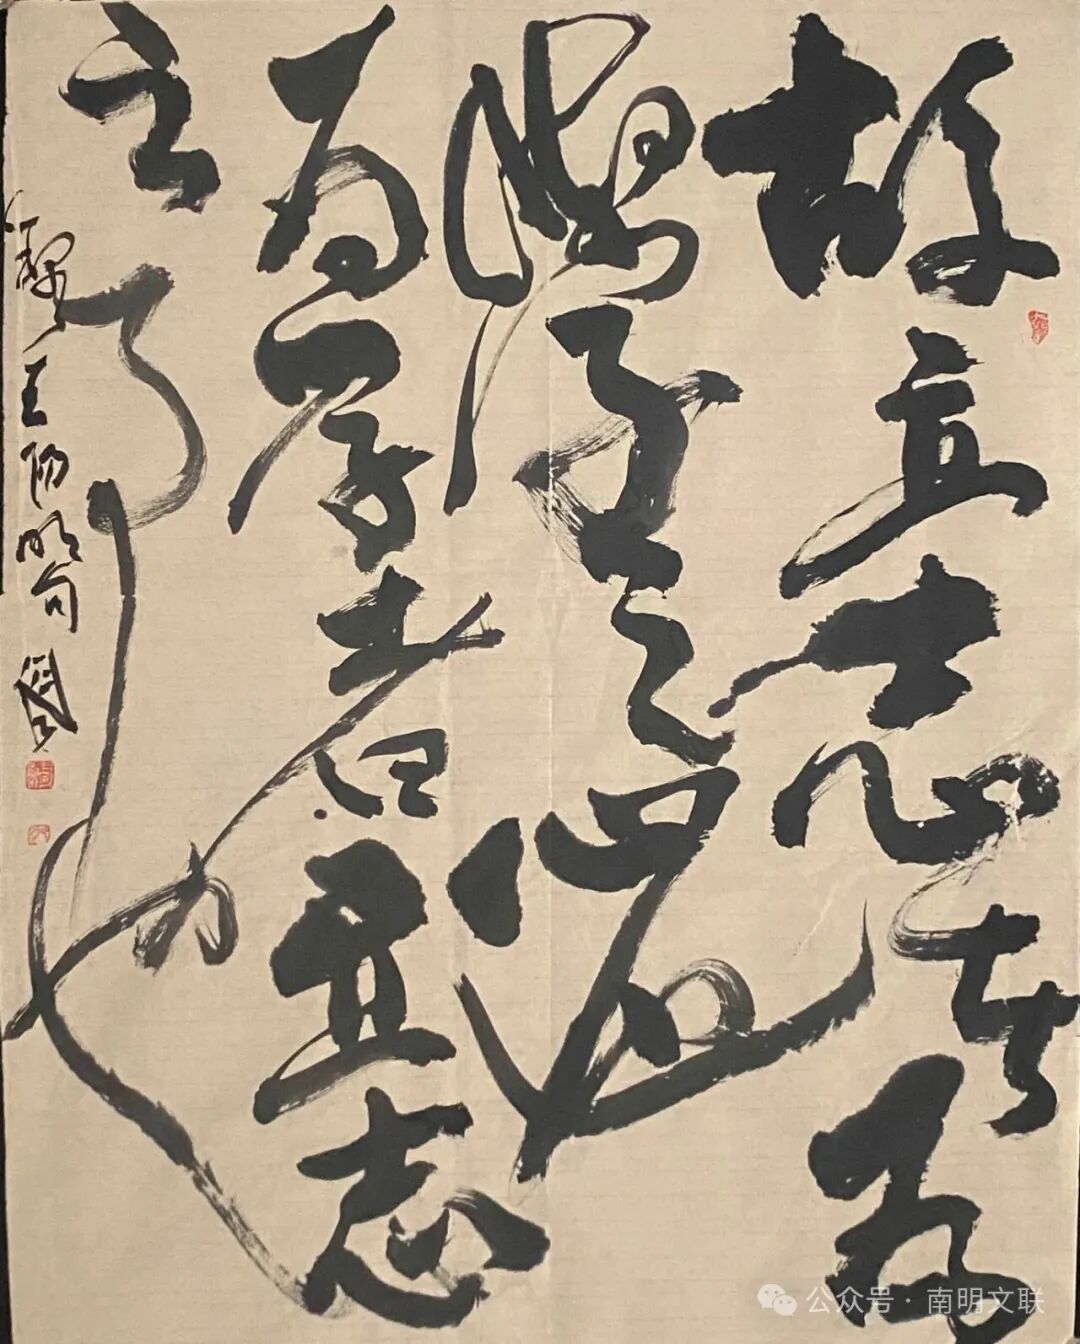 故立志者为
學之心也
为学者立志
之事也
录王阳明句
公众号·南明文联